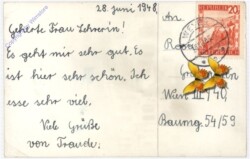 28. Juni 1948
Geehrte Frau Lehrerin!
Es geht mir sehr gut. Es
ist hier sehr schön. Ich
esse sehr viel.
Viele Grüße
von Traude.
An
Wien III / 40,
Baumg. 54/59
20